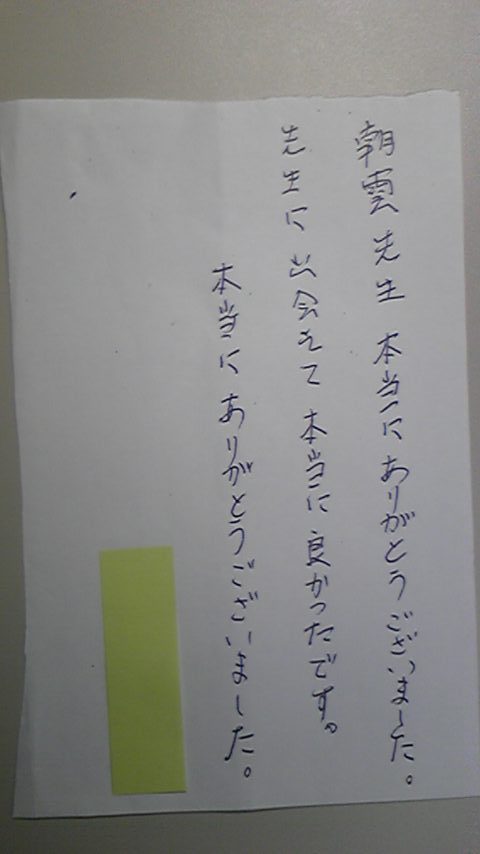 朝雲先生 本当にありがとうございました。
先生に出会えて本当に良かったです。
本当にありがとうございました。